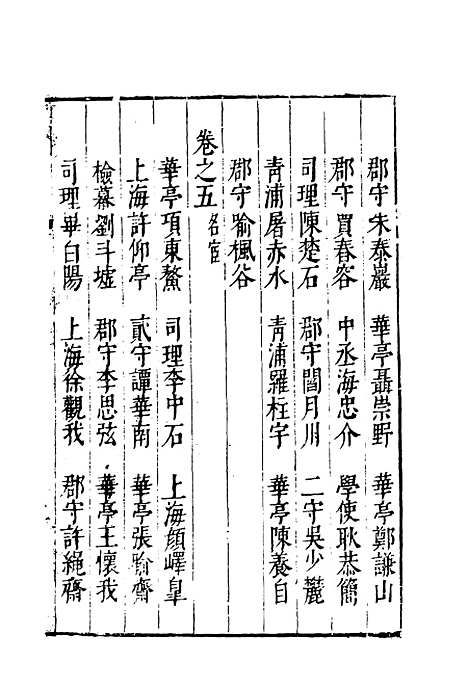 郡守朱泰巖　華亭聶崇野　華亭鄭謙山
郡守賈春容　中丞海忠介　學使耿恭簡
司理陳楚石　郡守閻月川　二守吳少麓
青浦屠赤水　青浦羅柱宇　華亭陳養自
郡守喻楓谷
卷之五　名宦
華亭項東鰲　司理李中石　上海顏嶧皐
上海許仰亭　貳守譚華南　華亭張瑜齋
檢幕劉斗墟　郡守李思弦　華亭王懷我
司理畢白陽　上海徐觀我　郡守許繩齋